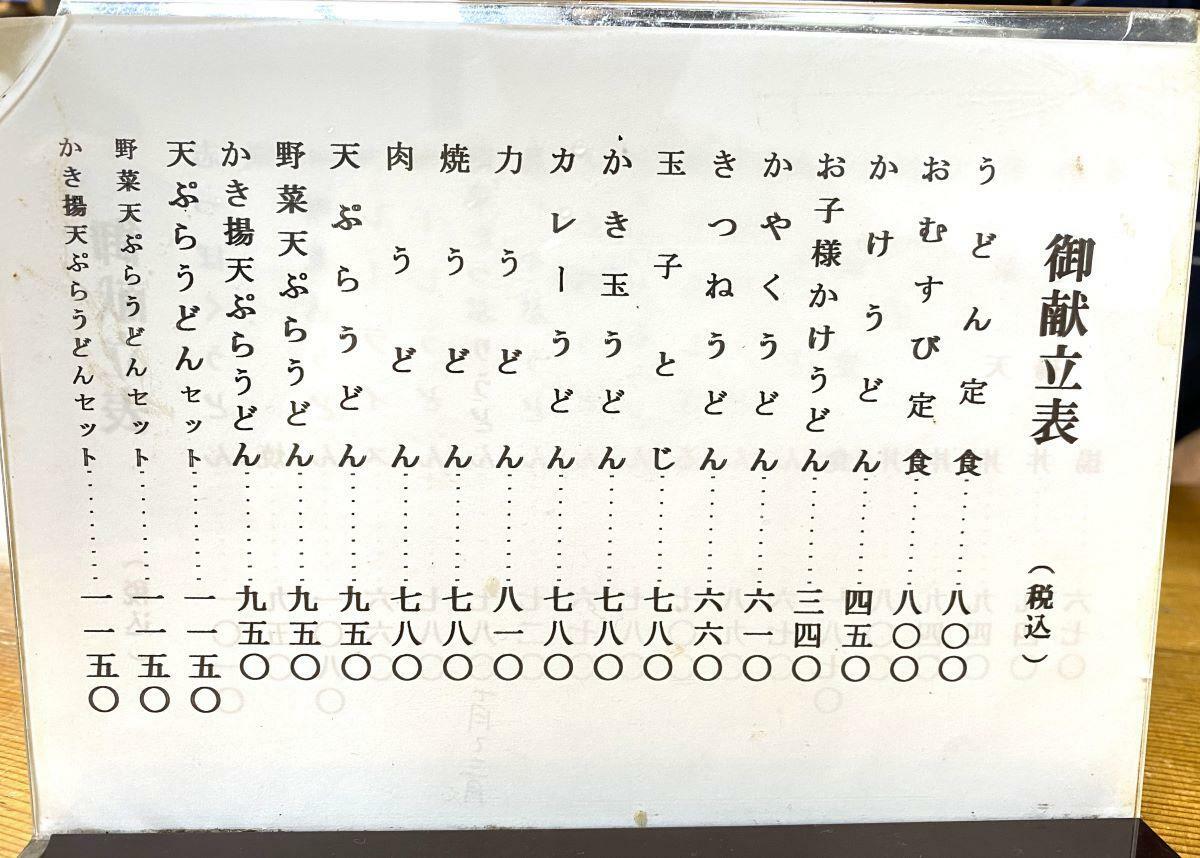 御献立表（税込）
うどん定食…………八〇〇
おむすび定食…………八〇〇
かけうどん…………四五〇
お子様かけうどん…………三四〇
かやくうどん…………六一〇
きつねうどん…………六六〇
玉子とじ…………七八〇
かき玉うどん…………七八〇
カレーうどん…………七八〇
力うどん…………八一〇
焼うどん…………七八〇
肉うどん…………七八〇
天ぷらうどん…………九五〇
野菜天ぷらうどん…………九五〇
かき揚天ぷらうどん…………九五〇
天ぷらうどんセット…………一一五〇
野菜天ぷらうどんセット…………一一五〇
かき揚天ぷらうどんセット…………一一五〇